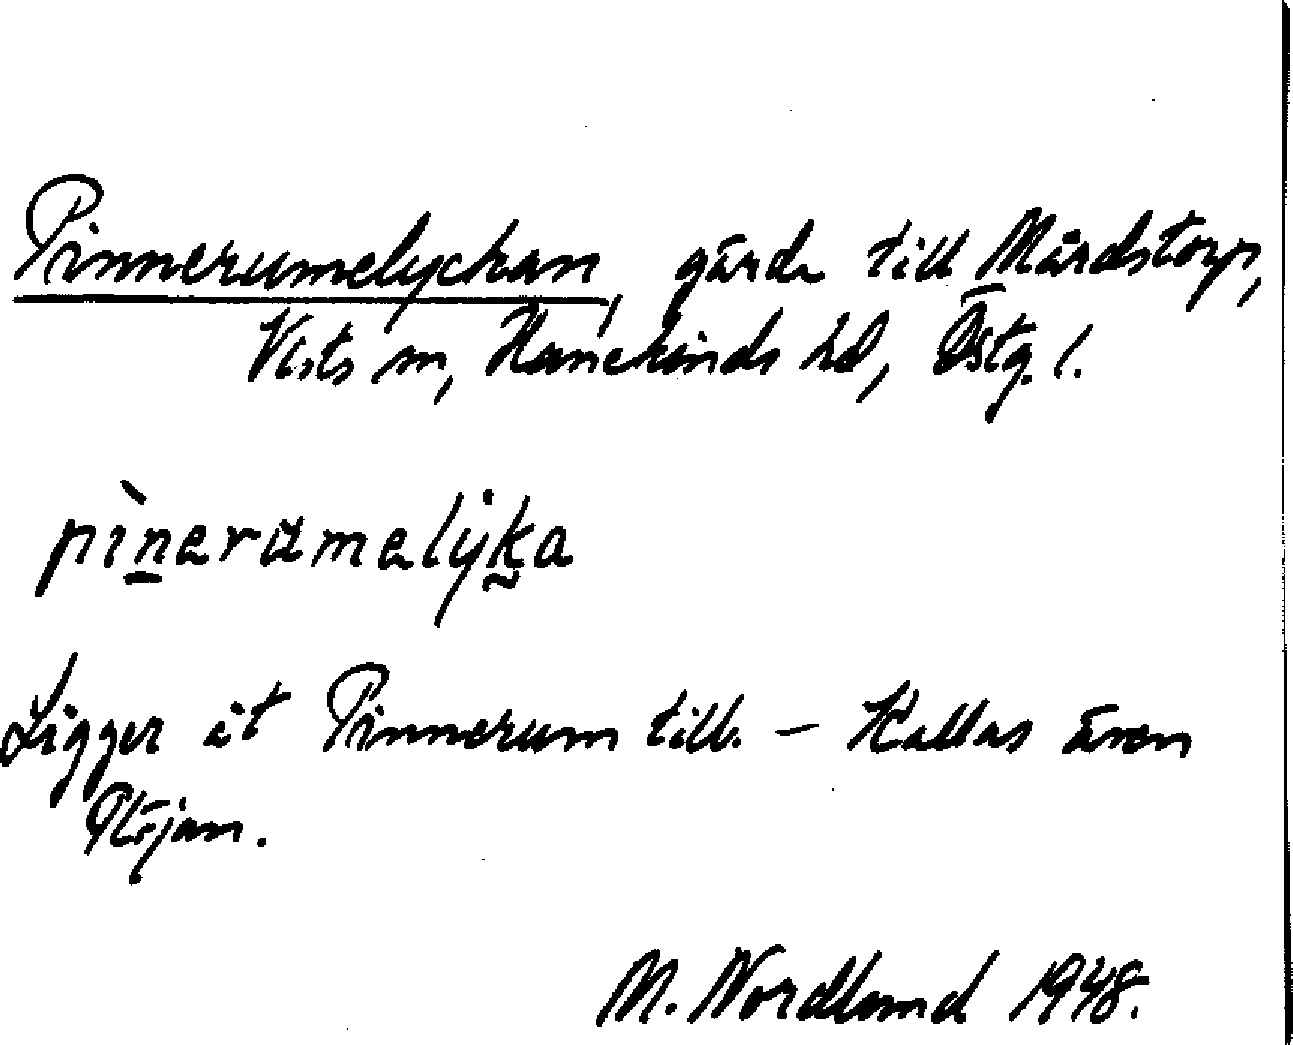 Pinnerumelyckan, gärde till Mårdstorp,
Vists sn, Hanekinds hd, Östg. l.
pìnerumelẏka
Ligger åt Pinnerum till. – Kallas även
Plöjan.
M. Nordland 1948.